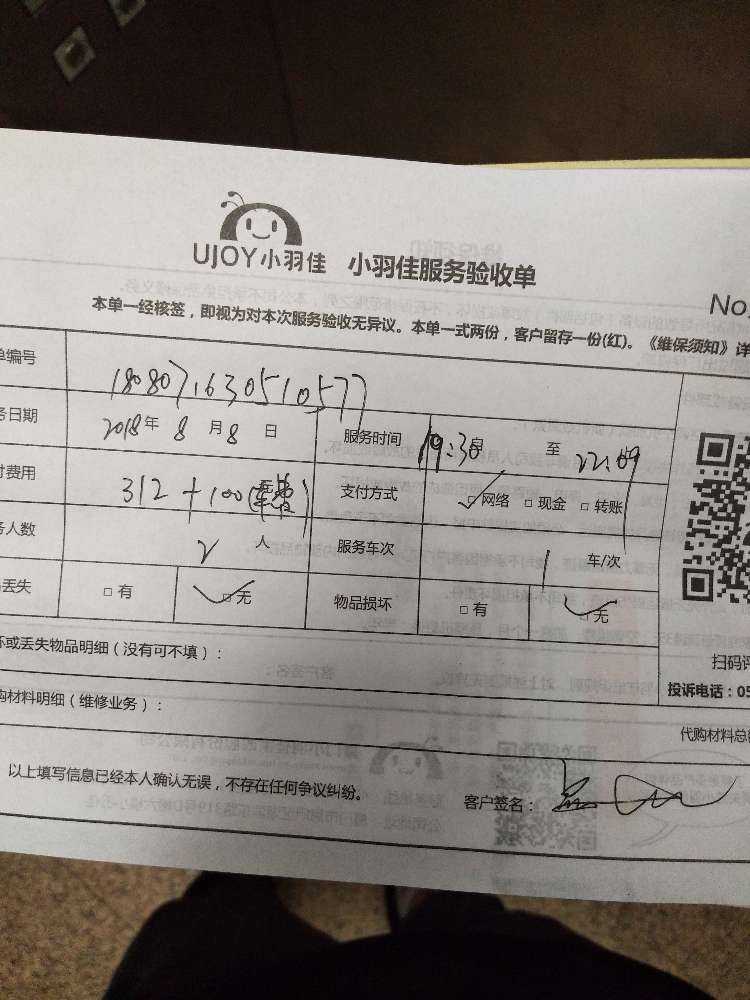 UJOY小羽佳 小羽佳服务验收单
No.
本单一经核签，即视为对本次服务验收无异议。本单一式两份，客户留存一份(红)。《维保须知》详
单编号 1808071630510577
务日期 2018年 8 月 8 日 服务时间 19:30 至 22:09
付费用 312+100 支付方式 □网络 □现金 □转账
务人数 2 人 服务车次 1 车/次
丢失 □有 □无 物品损坏 □有 □无
坏或丢失物品明细（没有可不填）：
扫码评
投诉电话：05
购材料明细（维修业务）：
代购材料总额
以上填写信息已经本人确认无误，不存在任何争议纠纷。
客户签名：